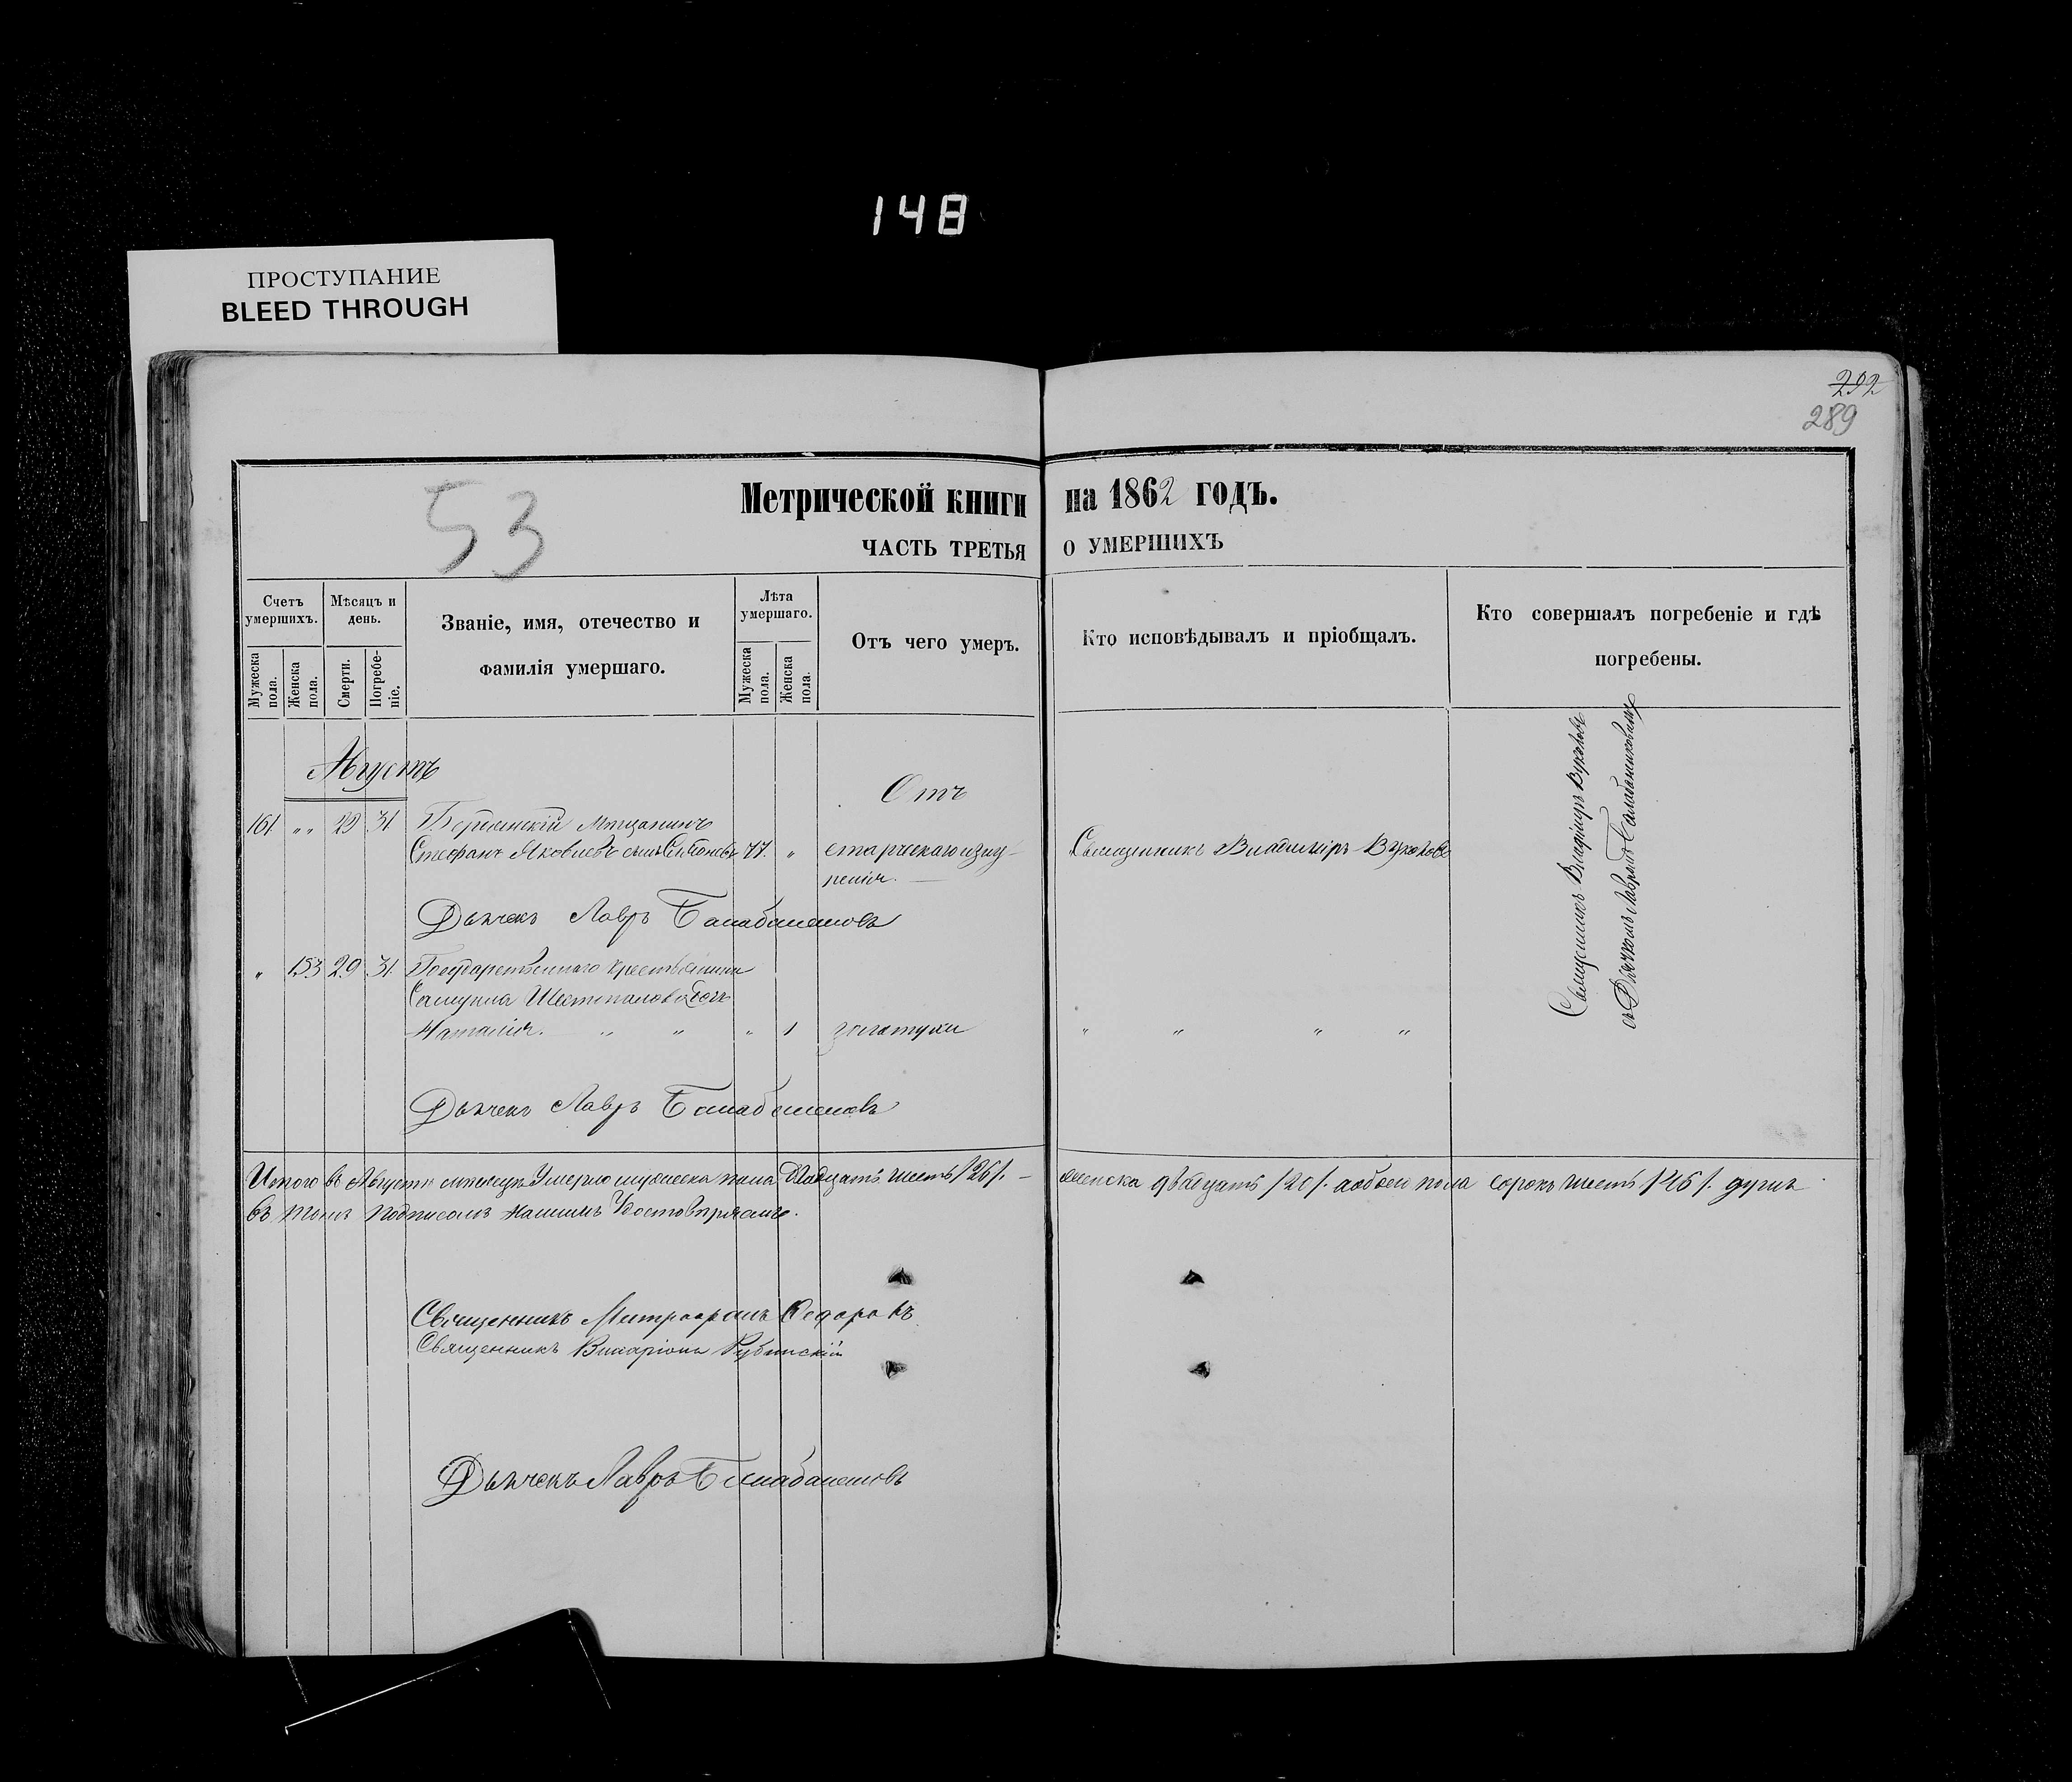 148
ПРОСТУПАНИЕ
BLEED THROUGH
292
289
53
Метрической книги на 1862 годъ.
ЧАСТЬ ТРЕТЬЯ О УМЕРШИХЪ
Счетъ умершихъ.
Мужеска пола.
Женска пола.
Мѣсяцъ и день.
Смерти.
Погребеніе.
Званіе, имя, отечество и фамилія умершаго.
Лѣта умершаго.
Мужеска пола.
Женска пола.
Отъ чего умеръ.
Кто исповѣдывалъ и пріобщалъ.
Кто совершалъ погребеніе и гдѣ погребены.
Августъ
Отъ
161 „ „ 29 31 Бердянскій Мѣщанинъ
Стефанъ Яковлевъ сынъ 77. „ старческаго изну-
ренія. Священникъ Владимиръ Вуколовъ
Священникъ Владиміръ Вуколовъ
съ Дьячкомъ
Дьячекъ Лавръ
„ 153 29 31 Государственнаго крестьянина
Самуила Шестопалова дочь
Наталія. „ „ „ 1 „ „ „ „
Дьячекъ Лавръ
Итого въ Августѣ мѣсяцѣ Умерло мужеска пола двадцать шесть /26/. – женска двадцать /20/. а обоего пола сорокъ шесть /46/. душъ
въ томъ подписомъ нашимъ Удостовѣряемъ.
Священникъ Митрофанъ
Священникъ Рубинскій
Дьячекъ Лавръ